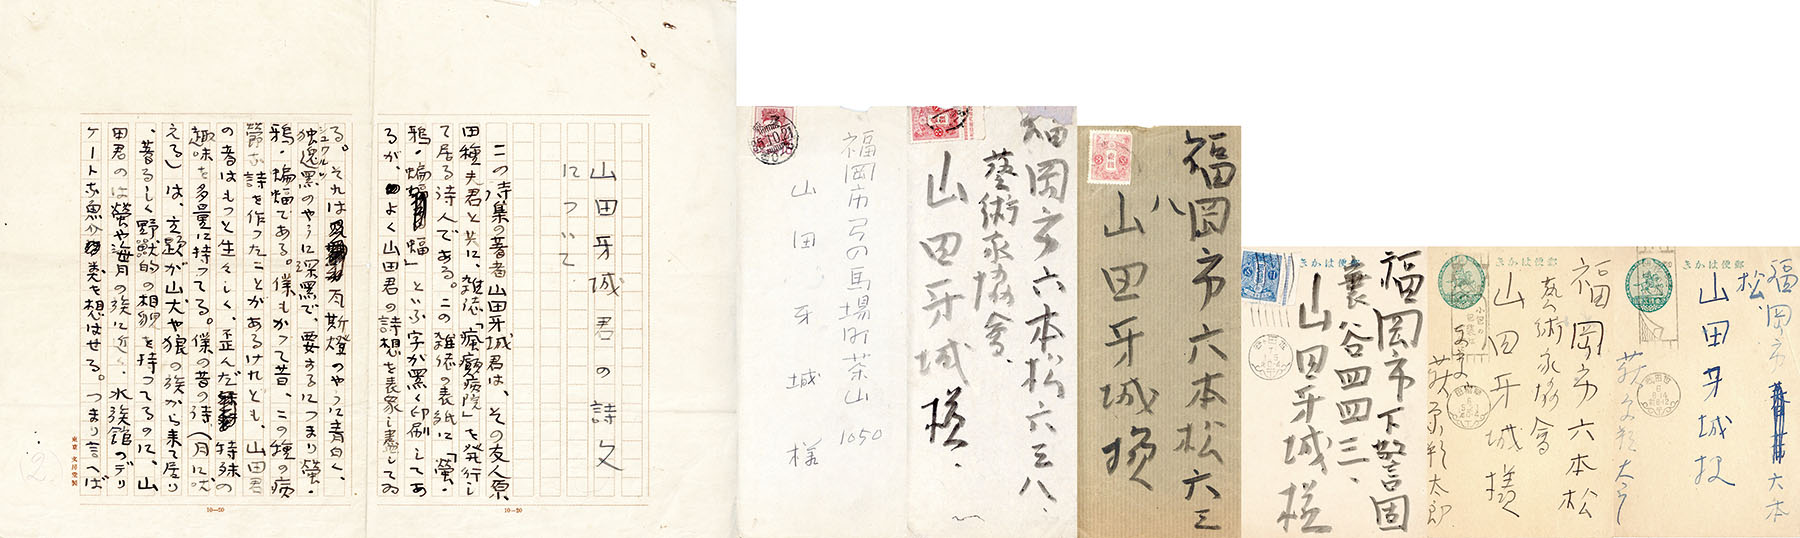 山田牙城君の詩文
について
この詩集の著者山田牙城君は、その友人原
田種夫君と共に、雑誌「瘋癲病院」を発行し
て居る詩人である。この雑誌の表紙に「螢・
鴉・蝙蝠」といふ字が黒く印刷してあ
るが、よく山田君の詩想を表象し盡してゐ
10—20
る。それは瓦斯燈のやうに青白く、
独逸黒のやうに深黒で、要するにつまり螢・
鴉・蝙蝠である。僕もかつて昔、この種の病
的な詩を作ったことがあるけれども、山田君
の者はもつと生々しく、歪んだ特殊の
趣味を多量に持ってる。僕の昔の詩(月に吠
える)は、主題が山犬や狼の族から来て居り
、著るしく野獣的の相貌を持ってるのに、山
田君のは螢や海月の族に近く、水族館のデリ
ケートな魚介類を想はせる。つまり言へば
10—20
東京 文房堂製
(2)
福岡市弓の馬場町茶山
1050
山田牙城様
福岡市六本松六三八、
藝術家協會、
山田牙城様、
福岡市六本松六三
八
山田牙城様
きかは便郵
福岡市下警固
谷四四三、
山田牙城様
きかは便郵
福岡市六本松
藝術家協會
山田牙城様
萩原朔太郎
きかは便郵
福岡市六本
松
山田牙城様
萩原朔太郎